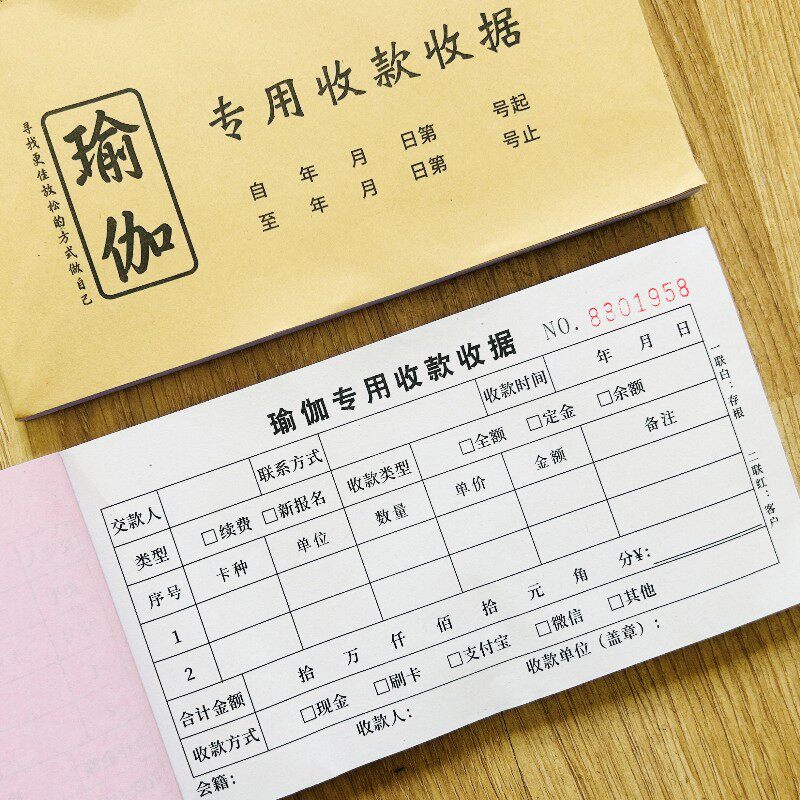 专用收款收据
瑜伽
寻找更佳放松的方式做自己
自 年 月 日第 号起
至 年 月 日第 号止
瑜伽专用收款收据
NO. 8801958
交款人 联系方式 收款时间 年 月 日
类型 □续费 □新报名 收款类型 □全额 □定金 □余额
序号 卡种 单位 数量 单价 金额 备注
1
2
合计金额 拾 万 仟 佰 拾 元 角 分¥:
收款方式 □现金 □刷卡 □支付宝 □微信 □其他
会籍: 收款人: 收款单位(盖章):
一联白:存根
二联红:客户